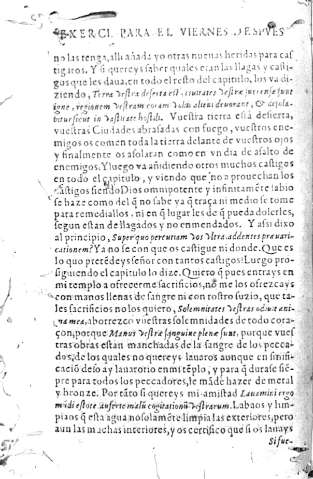 EXERCI. PARA EL VIERNES DESPVES
no las tenga, alli añada yo otras nueuas heridas para cas
tigaros. Y si quereys saber quales eran las llagas y casti-
gos que les daua, en todo el resto del capitulo, los va di-
ziendo, Terra vestra deserta est, ciuitates vestræ succensæ sunt
igne, regionem vestram coram vobis alieni deuorant, & desola-
bitur sicut in vastitate hostili. Vuestra tierra està desierta,
vuestras Ciudades abrasadas con fuego, vuestros ene-
migos os comen toda la tierra delante de vuestros ojos
y finalmente os asolaran como en vn dia de asalto de
enemigos. Y luego va añidiendo otros muchos castigos
en todo el capitulo, y viendo que no aprouechan los
castigos siendo Dios omnipotente y infinitamẽte sabio
se haze como del q̃ no sabe ya q̃ traça ni medio se tome
para remediallos, ni en q̃ lugar les de q̃ pueda dolerles,
segun estan de llagados y no enmendados. Y assi dixo
al principio, Super quo percutiam vos vltra addentes præuari-
cationem? Ya no se con que os castigue ni donde. Que es
lo quo pretẽdeys señor con tantos castigos? Luego pro-
siguiendo el capitulo lo dize. Quiero q̃ pues entrays en
mi templo a ofrecerme sacrificios, no me los ofrezcays
con manos llenas de sangre ni con rostro suzio, que ta-
les sacrificios no los quiero, Solemnitates vestras odiuit ani-
ma mea, aborrezco vuestras solemnidades de todo cora-
çon, porque Manus vestræ sanguine plenæ sunt, porque vues
tras obras estan manchadas de la sangre de los pecca-
dos, de los quales no quereys lauaros aunque en sinifi-
cació deso ay lauatorio en mi tẽplo, y para q̃ durase siẽ-
pre para todos los peccadores, le mãde hazer de metal
y bronze. Por tãto si quereys mi amistad Lauamini ergo
mundi estote auferte malũ cogitationũ vestrarum. Labaos y lim-
pianos q̃ esta agua no solamẽte limpia las exteriores, pero
aun las manchas interiores, y os certifico que si os lauays
Si fue-